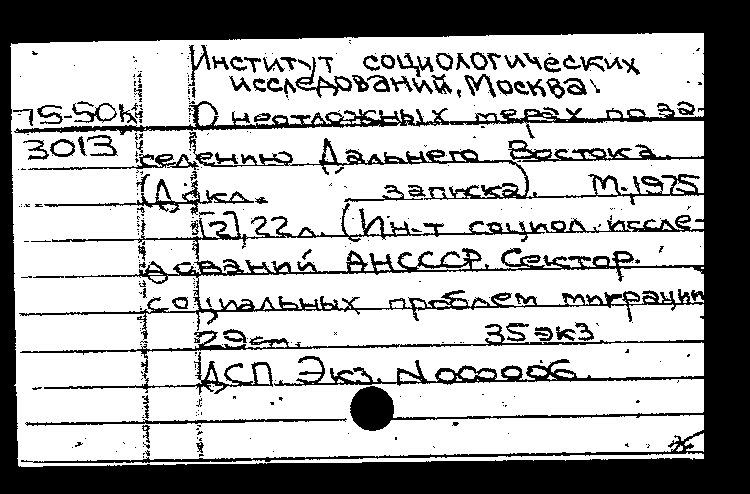 Институт социологических
исследований, Москва.
75-50к О неотложных мерах по за-
3013 селению Дальнего Востока.
(Докл. записка). М., 1975
[2], 22 л. (Ин-т социол. иссле-
дований АНСССР. Сектор.
социальных проблем миграции
29 см. 35 экз.
ДСП. Экз. N 000006.